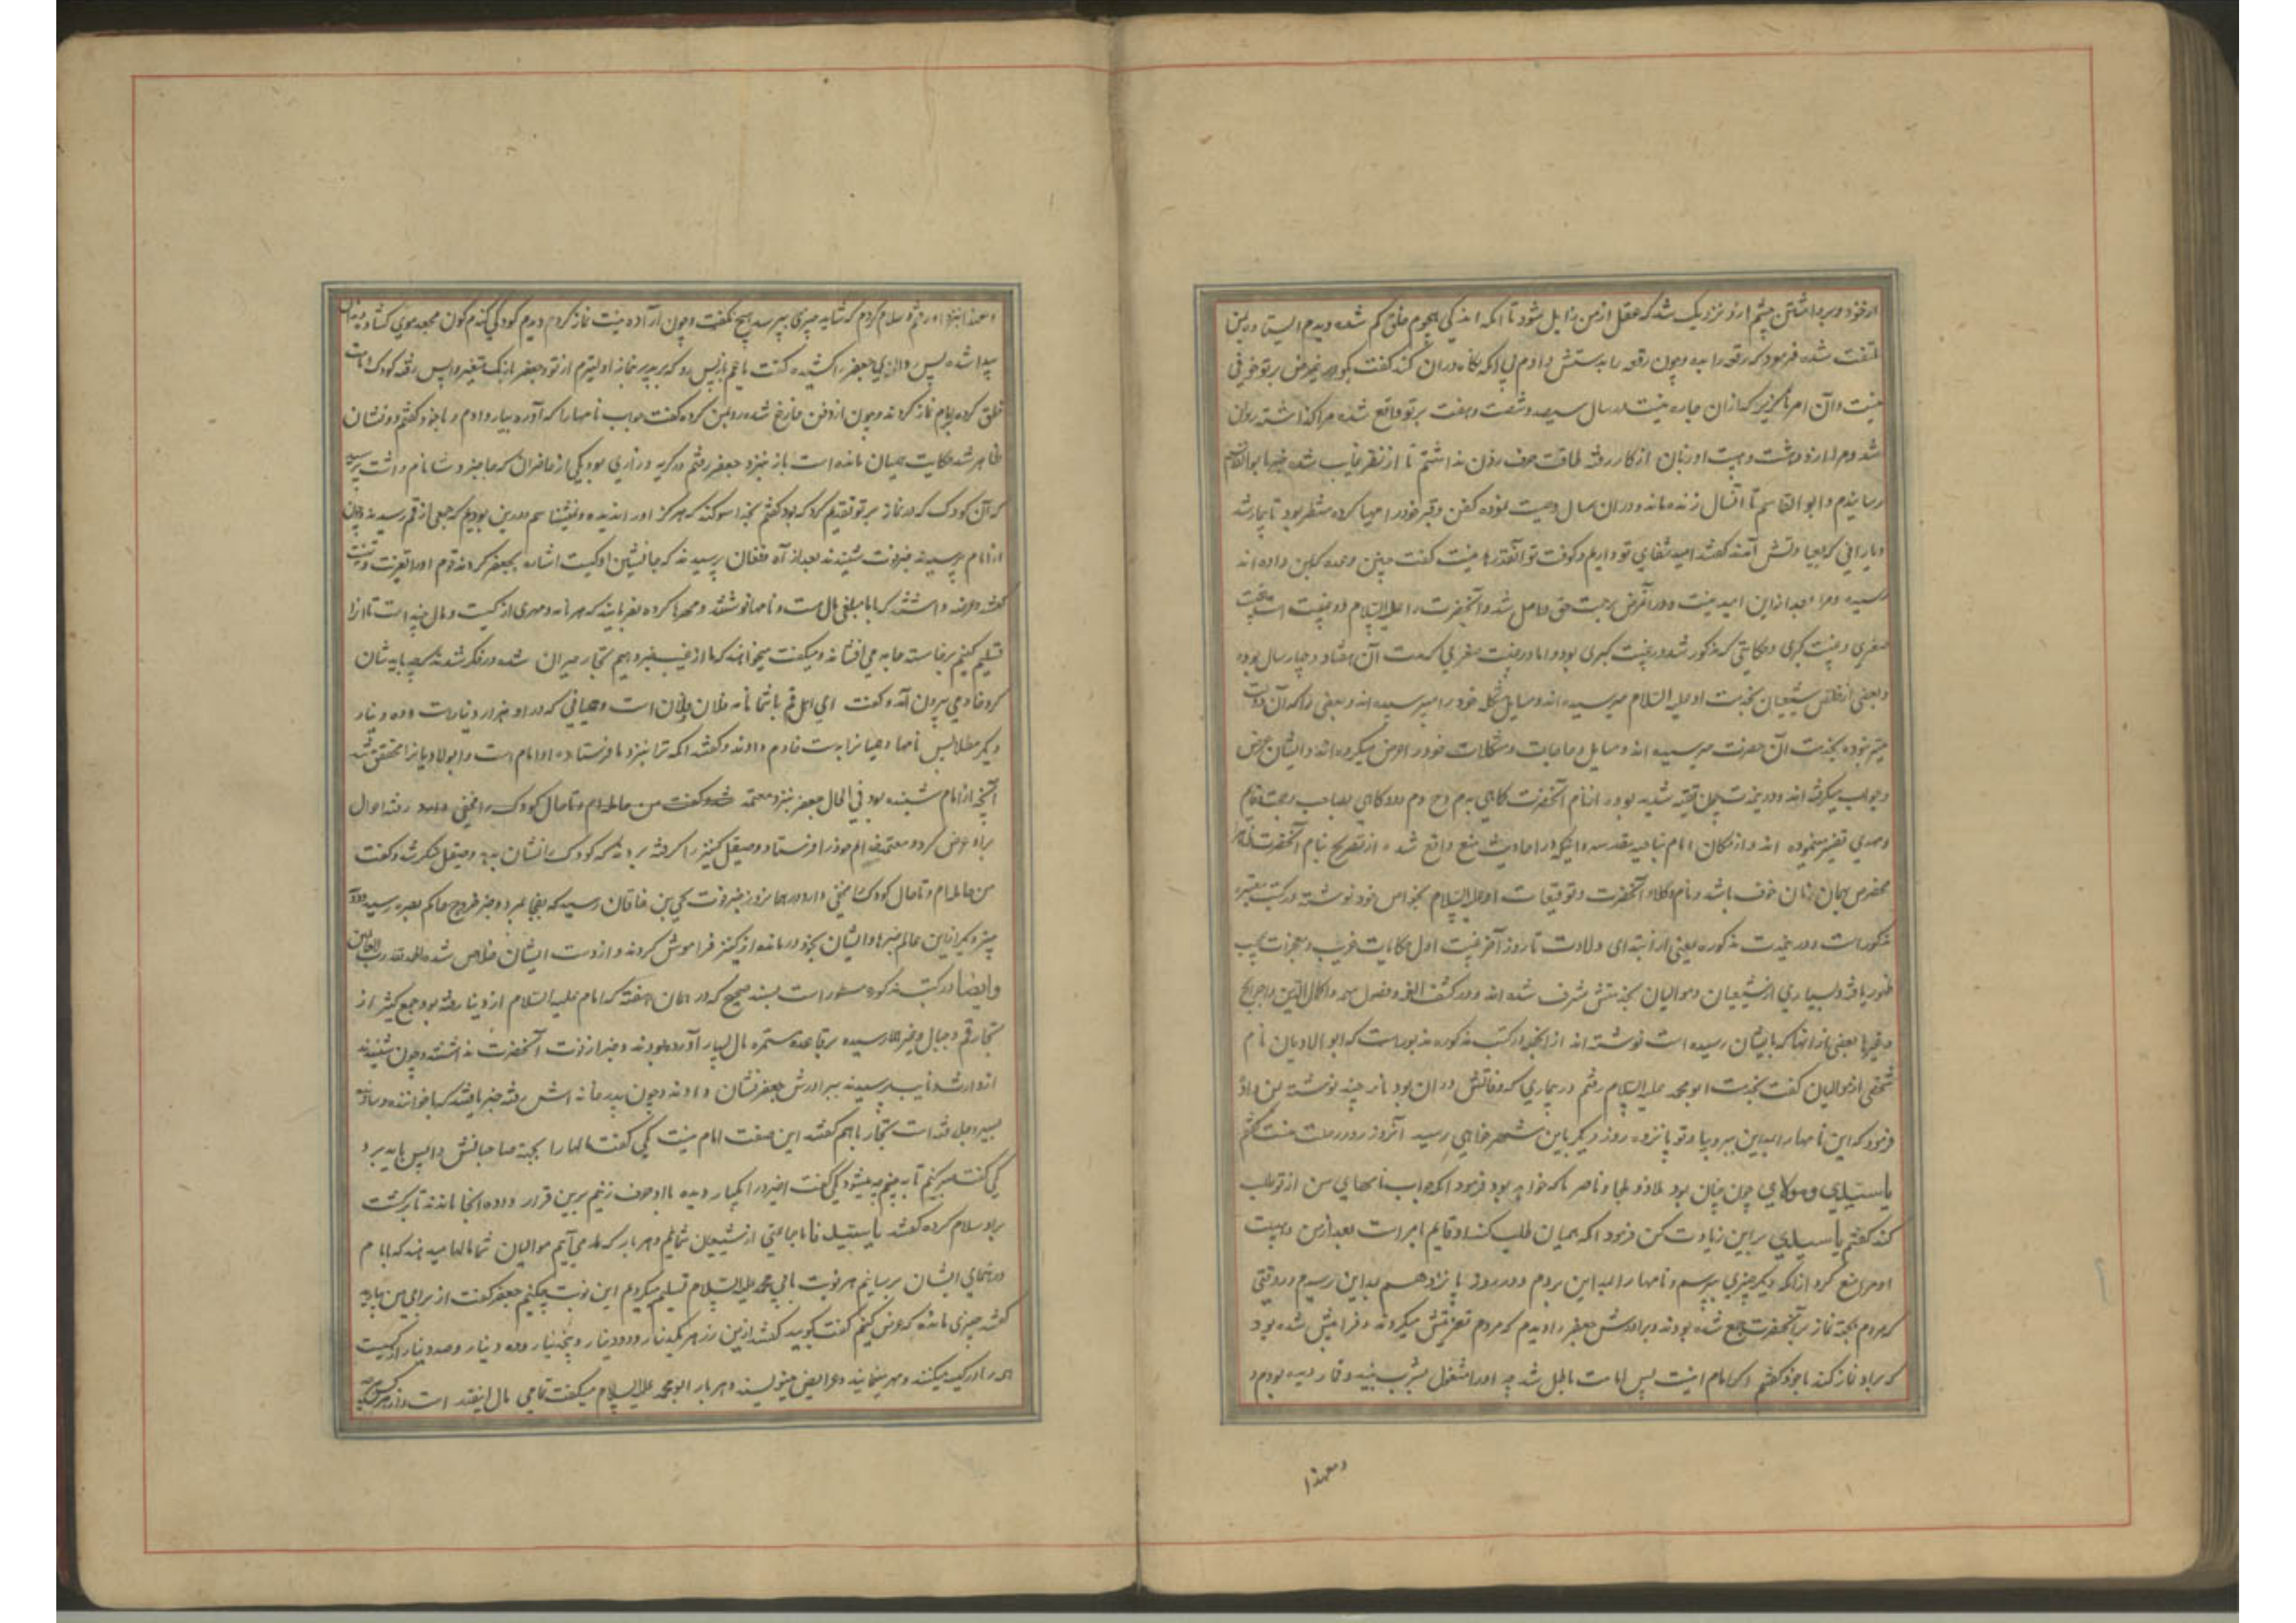 از خود و برداشتن چشم ازو نزدیک شد که عقل از من زایل شود تا آنکه اندکی هجوم خلق کم شده دیدم ایستاده بمن
ملتفت شده فرمود که رقعه را بده و چون رقعه را بدستش دادم بی آنکه نگاه در آن کند گفت بگو درین مرض بر تو خوفی
نیست و آن امر ناگزیر که از آن چاره نیست در سال سیصد و شصت و هفت بر تو واقع شده مرا گذاشته روان
شد و من از دهشت و هیبت او زبان از کار رفته طاقت حرف زدن نداشتم تا از نظر غایب شده خبر بابوالقاسم
رسانیدم و ابو القاسم تا آنسال زنده ماند و در آن سال وصیت نموده کفن و قبر خود را مهیا کرده منتظر بود تا بیمار شد
و یارانی که بعیادتش آمدند گفتند امید شفای تو داریم و کوفت تو آنقدرها نیست گفت چنین وعده که بمن داده اند
رسیده و مرا بعد ازین امید نیست و در آن مرض برحمت حق واصل شد و آنحضرت را علیه السلام دو غیبت است غیبت
صغری و غیبت کبری و حکایتی که مذکور شد در غیبت کبری بود و اما در غیبت صغری که مدت آن هفتاد و چهار سال بوده
و بعضی از خلص شیعیان بخدمت او علیه السلام میرسیده اند و مسایل مشکله خود را میپرسیده اند و بعضی را که آن دولت
میسر نبوده بخدمت آن حضرت میرسیده اند و مسایل و حاجات و مشکلات خود را عرض میکرده اند و ایشان عرض
و جواب میگرفته اند و درین مدت چون تقیه شدید بود از نام آنحضرت گاهی به م ح م د و گاهی بصاحب و حجت و قایم
و مهدی تعبیر مینموده اند و از مکان امام بناحیه مقدسه و اینکه در احادیث منع واقع شده از تصریح بنام آنحضرت ظاهرا
مخصوص همان زمان خوف باشد و نام وکلاء آنحضرت و توقیعات او علیه السلام بخواص خود نوشته در کتب معتبره
مذکور است و در مدت مذکوره یعنی از ابتدای ولادت تا روز آخر غیبت اول حکایات غریب و معجزات عجیب
ظهور یافته و بسیاری از شیعیان و موالیان بخدمتش مشرف شده اند و در کشف الغمه و فصول مهمه و اکمال الدین و خرایج
و غیرها بعضی از آنها که بایشان رسیده است نوشته اند از آنجمله در کتب مذکوره مذبور است که ابو الادیان نام
شخصی از موالیان گفت بخدمت ابو محمد علیه السلام رفتم در بیماری که وفاتش در آن بود نامه چند نوشته بمن داد
فرمود که این نامها را بمداین ببر و بیا و تو پانزده روز دیگر باین شهر خواهی رسید آنروز روز رحلت منست گفتم
یا سیدی و مولای چون چنان بود ملاذ و ملجا و ناصر ما که خواهد بود فرمود آنکه جواب نامهای من از تو طلب
کند گفتم یا سیدی برین زیادت کن فرمود آنکه همیان طلب کند او قایم امر است بعد از من و هیبت
او مرا منع کرد از آنکه دیگر چیزی بپرسم و نامها را بمداین بردم و در روز پانزدهم بداین رسیدم در وقتی
که مردم بجهة نماز بر آنحضرت جمع شده بودند و برادرش جعفر را دیدم که مردم تعزیتش میکردند و فرا پیش شده بود
که برو نماز کند با خود گفتم اگر امام اینست پس امامت باطل شد چه او را مشغول بشرب نبیذ و قمار دیده بودم و
و معهذا
و معهذا بنزد او رفتم و سلام کردم که شاید چیزی بپرسد هیچ نگفت و چون آماده نیت نماز کرد دیدم کودکی گندم گون مجعد موی گشاده دندان
پیدا شده پس ردای جعفر را کشیده گفت یا عم باز پس رو که بر پدر نماز اولیترم از تو و جعفر با رنگ متغیر واپس رفته کودک امامت
خلق کرده تمام نماز کردند و چون از دفن فارغ شده رو بمن کرده گفت جواب نامها را که آورده بیار دادم و با خود گفتم دو نشان
ظاهر شد حکایت همیان مانده است باز بنزد جعفر رفتم در گریه و زاری بود یکی از حاضران که حاجز وشا نام داشت پرسید
که آن کودک که در نماز بر تو تقدم کرد که بود گفتم بخدا سوگند که هرگز او را ندیده و نمیشناسم و درین بودیم که جمعی از قم رسیدند و چون
از امام پرسیدند خبر فوت شنیدند بعد از آه و فغان پرسیدند که جانشین او کیست اشاره بجعفر کردند قوم او را تعزیت و تهنیت
گفتند و عرضه داشتند که با ما مبلغی مال است و نامها نوشته و مهرها کرده بفرمایند که هر نامه و مهری از کیست و مال چند است تا آنرا
تسلیم کنیم برخاسته جامه می افشاند و میگفت میخواهند که ما از غیب خبر دهیم تجار حیران شده در فکر شدند که چه باید شان
کرد خادمی بیرون آمد و گفت ای اهل قم با شما نامه فلان و فلان است و همیانی که در او هزار دینار است و ده دینار
دیگر مطلا پس نامها و همیانرا بدست خادم دادند و گفتند آنکه ترا بنزد ما فرستاده او امام است و ابوالادیانرا محقق شد
آنچه از امام شنیده بود فی الحال جعفر بنزد معتمد شد و گفت من حامله ام و تا حال کودک را مخفی دارند رفته احوال
برو عرض کرد و معتمد خدام خود را فرستاد و صیقل کنیز را گرفته بردند که کودک را نشان بده و صیقل منکر شد و گفت
من حامله ام و تا حال کودک مخفی دارد در همانروز خبر فوت یحیی بن خاقان رسید که بفجا مرد و خبر خروج حاکم بصره رسید و دو
چیز دیگر ازین عالم خبرها و ایشان بخود درمانده از کنیز فراموش کردند و از دست ایشان خلاص شد الحمد لله رب العالمین
و ایضا در کتب مذکوره مسطور است بسند صحیح که در همان هفته که امام علیه السلام از دنیا رفته بود جمع کثیر از
تجار قم و جبال و غیرها رسیده بر قاعده مستمره مال بسیار آورده بودند و خبر از فوت آنحضرت نداشتند و چون شنیدند
از وارث و نایب پرسیدند ببرادرش جعفر نشان دادند و چون بدر خانه اش رفته خبر یافتند که با خواننده و سازنده
بسیر دجله رفته است تجار با هم گفتند این صفت امام نیست یکی گفت مالها را بجهة صاحبانش واپس باید برد
یکی گفت صبر کنیم تا ببینیم چه میشود یکی گفت امیر را یکبار دیده با او حرف زنیم برین قرار داده آنجا ماندند تا برگشت
برو سلام کرده گفتند یا سیدنا ما جماعتی از شیعیان شمائیم و هر بار که ما می آئیم موالیان شما مالها میدهند که بامام
و رهنمای ایشان برسانیم هر نوبت بابی محمد علیه السلام تسلیم میکردیم این نوبت چکنیم جعفر گفت از برای من بیارید
گفتند چیزی مانده که عرض کنیم گفت بگویید گفتند ازین زر هر یکدینار و دو دینار و پنجدینار و ده دینار و صد دینار از کسیست
که در او کیسه میکنند و مهر مینمایند و عرایض مینویسند و هر بار ابو محمد علیه السلام میگفت تمامی مال اینقدر است و از هر کس چه